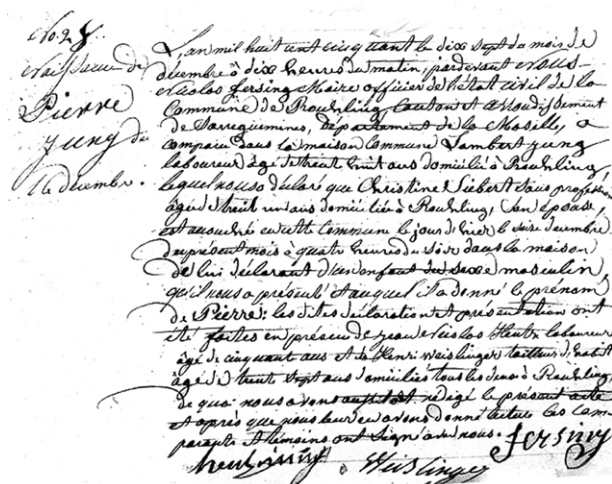 No. 28.
Naissance de
Pierre
Jung du
16 décembre.
L'an mil huit cent cinquante le dix sept du mois de
décembre à dix heures du matin, pardevant nous
Nicolas Fersing Maire officier de l'état civil de la
Commune de Rouhling, canton et arrondissement
de Sarreguemines, département de la Moselle, a
comparu dans la maison commune Lambert Jung
laboureur âgé de trente huit ans domicilié à Rouhling,
lequel nous a déclaré que Christine Siebert sans profession
âgée de trente un ans domiciliée à Rouhling, son épouse,
est accouchée en cette commune le jour d'hier le seize décembre
du présent mois à quatre heures du soir dans la maison
de lui déclarant d'un enfant du sexe masculin,
qu'il nous a présenté et auquel il a donné le prénom
de Pierre; les dites déclaration et présentation ont
été faites en présence de Jean Nicolas Heutz laboureur
âgé de cinquante ans et de Henri Weislinger tailleur d'habit
âgé de trente sept ans domiciliés tous les deux à Rouhling,
de quoi nous avons aussitôt rédigé le présent acte
et après que nous leur en avons donné lecture les com-
parants et témoins ont signé avec nous. Fersing
Weislinger